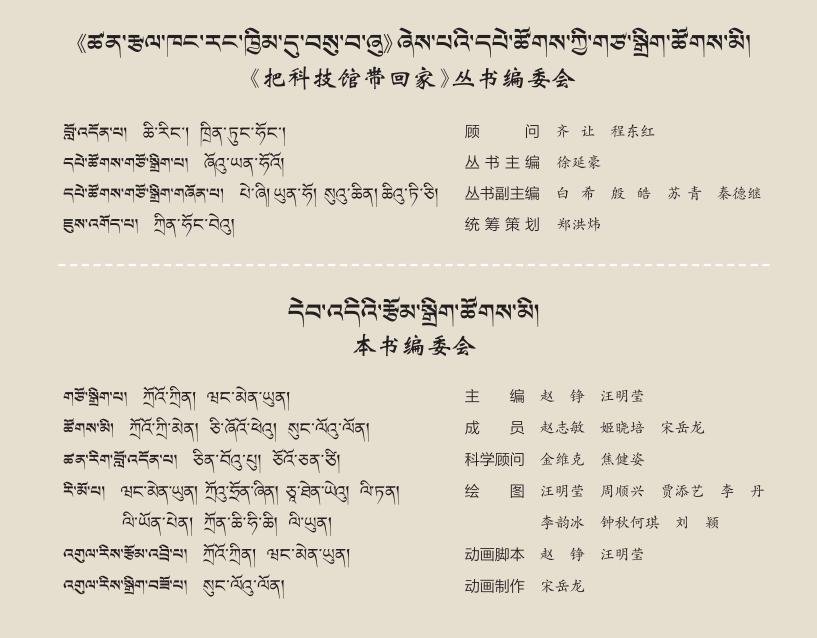 《ཚན་རྩལ་ཁང་རང་ཁྱིམ་དུ་བསུ་བ་ཞུ》ཞེས་པའི་དཔེ་ཚོགས་ཀྱི་གཙ་སྒྲིག་ཚོགས་མི།
《把科技馆带回家》丛书编委会
བློ་འདོན་པ། ཆི་རིང་། ཁྲིན་ཏུང་ཧོང་། 顾 问 齐 让 程东红
དཔེ་ཚོགས་གཙོ་སྒྲིག་པ། ཞོའུ་ཡན་ཧོའོ། 丛书主编 徐延豪
དཔེ་ཚོགས་གཙོ་སྒྲིག་གཞོན་པ། པེ་ཞི། ཡུན་ཧོ། སུའུ་ཆིན། ཆིའུ་ཏི་ཅི། 丛书副主编 白 希 殷 皓 苏 青 秦德继
ཇུས་འགོད་པ། ཀྲིན་ཧོང་བེའུ། 统筹策划 郑洪炜
དེབ་འདིའི་རྩོམ་སྒྲིག་ཚོགས་མི།
本书编委会
གཙོ་སྒྲིག་པ། ཀྲོའོ་ཀྲིན། ཝང་མེན་ཡུན། 主 编 赵 铮 汪明莹
ཚོགས་མི། ཀྲོའོ་ཀྲི་མེན། ཅི་ཞོའོ་ཕེའུ། སུང་ལོའུ་ལོན། 成 员 赵志敏 姬晓培 宋岳龙
ཚན་རིག་བློ་འདོན་པ། ཅིན་བོའུ་པུ། ཅོའོ་ཅན་ཙི། 科学顾问 金维克 焦健姿
རི་མོ་པ། ཝང་མེན་ཡུན། ཀྲོའུ་ཧྲོན་ཞིན། ཅཱ་ཐེན་ཡེའུ། ལི་ཏན། 绘 图 汪明莹 周顺兴 贾添艺 李 丹
ལི་ཡོན་པེན། ཀྲོན་ཆི་ཧི་ཆི། ལི་ཡུན། 李韵冰 钟秋何琪 刘 颖
འགུལ་རིས་རྩོམ་འབྲི་པ། ཀྲོའོ་ཀྲིན། ཝང་མེན་ཡུན། 动画脚本 赵 铮 汪明莹
འགུལ་རིས་སྒྲིག་བཟོ་པ། སུང་ལོའུ་ལོན། 动画制作 宋岳龙